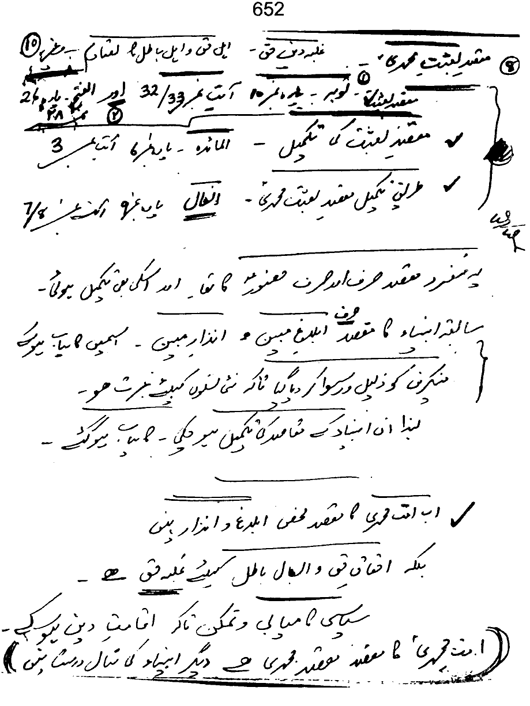 652
⑧ مقصدِ بعثتِ محمدیؐ - غلبہ دین حق - اور باطل کا
مقصدِ بعثت - ① توبہ - پارہ نمبر ۱۰ آیت نمبر 32/33 اور ② الفتح - پارہ 26
✓ مقصدِ بعثت کی تکمیل - المائدہ - پارہ نمبر ۶ آیت نمبر 3
✓ طریقِ تکمیل مقصدِ بعثت محمدیؐ - انفال پارہ نمبر ۹ آیت نمبر 7/8
یہ منفرد مقصد صرف اور صرف حضورؐ کا تھا - اور اسکی ہی تکمیل ہوئی -
سابقہ انبیاء کا مقصد صرف ابلاغِ مبین و انذارِ مبین - اسمیں کامیاب ہوئے
منکرین کو ذلیل و رسوا کر دیا گیا تاکہ نئی نسلوں کیلئے عبرت ہو -
لہذا ان انبیاء کے مقاصد کی تکمیل ہو چکی - کامیاب ہو گئے -
✓ اب امت محمدی کا مقصد محض ابلاغ و انذار نہیں
بلکہ احقاقِ حق و ابطال باطل کیلئے غلبہ حق ہے -
سیاسی کامیابی و تمکن تاکہ اقامتِ دین ہو سکے -
(امت محمدیؐ کا مقصد مقصدِ محمدی ہے دیگر انبیاء کی مثال درست نہیں)